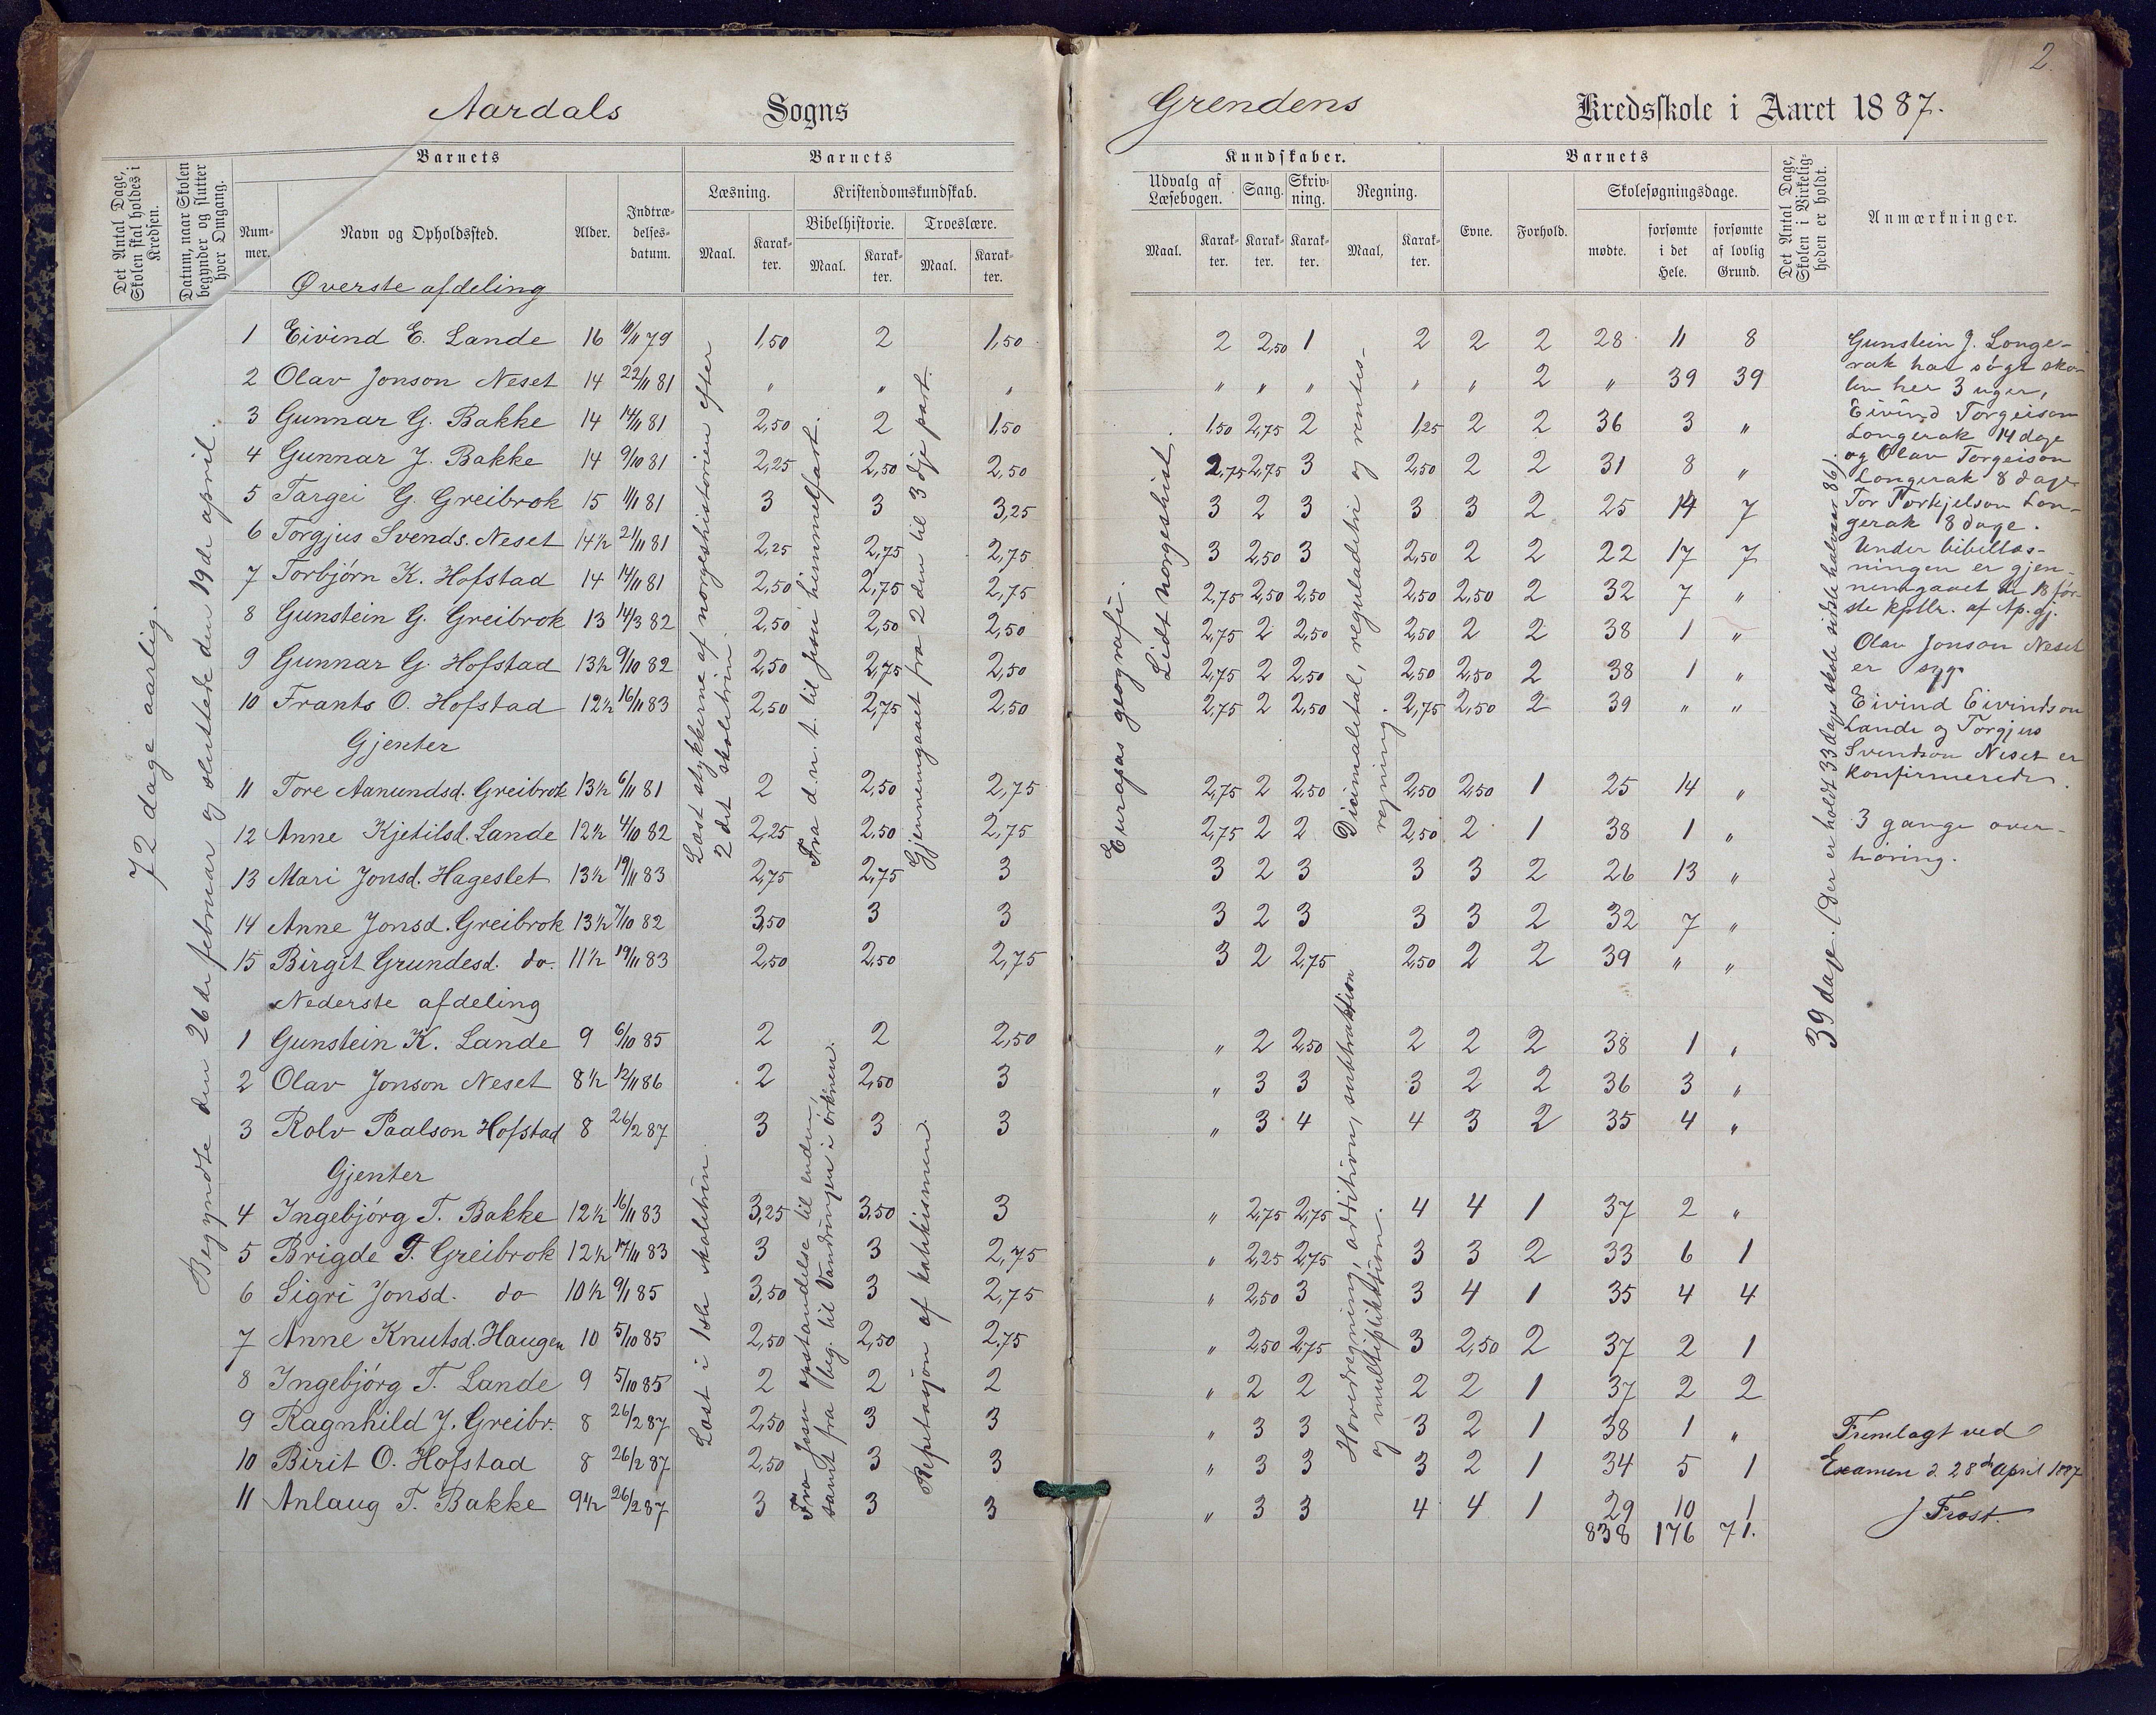 2.
Aardals Sogns
Grendens Kredsskole i Aaret 1887.
Det Antal Dage, Skolen skal holdes i Kredsen.
Datum, naar Skolen begynder og slutter hver Omgang.
Barnets
Nummer.
Navn og Opholdssted.
Alder.
Indtrædelsesdatum.
Barnets
Læsning.
Maal.
Karakter.
Kristendomskundskab.
Bibelhistorie.
Maal.
Karakter.
Troeslære.
Maal.
Karakter.
Kundskaber.
Udvalg af Læsebogen.
Maal.
Karakter.
Sang.
Karakter.
Skrivning.
Karakter.
Regning.
Maal.
Karakter.
Barnets
Evne.
Forhold.
Skolesøgningsdage.
mødte.
forsømte i det Hele.
forsømte af lovlig Grund.
Det Antal Dage, Skolen i Virkeligheden er holdt.
Anmærkninger.
72 dage aarlig.
Begyndte den 26de februar og sluttede den 19de april.
Øverste afdeling
1 Eivind E. Lande 16 10/11 79 1,50 2 1,50 2 2,50 1 2 2 2 28 11 8
2 Olav Jonson Neset 14 22/11 81 " " " " " " " " 2 " 39 39
3 Gunnar G. Bakke 14 14/11 81 2,50 2 1,50 1,50 2,75 2 1,25 2 2 36 3 "
4 Gunnar J. Bakke 14 9/10 81 2,25 2,50 2,50 2,75 2,75 3 2,50 2 2 31 8 "
5 Targei G. Greibrok 15 11/11 81 3 3 3,25 3 2 3 3 3 2 25 14 7
6 Torgjus Svends. Neset 14½ 21/11 81 2,25 2,75 2,75 3 2,50 3 2,50 2 2 22 17 7
7 Torbjørn K. Hofstad 14 14/11 81 2,50 2,75 2,75 2,75 2,50 2,50 2,50 2,50 2 32 7 "
8 Gunstein G. Greibrok 13 14/3 82 2,50 2,50 2,50 2,75 2 2,50 2,50 2 2 38 1 "
9 Gunnar G. Hofstad 13½ 9/10 82 2,50 2,75 2,50 2,75 2 2,50 2,50 2,50 2 38 1 "
10 Frants O. Hofstad 12½ 16/11 83 2,50 2,75 2,50 2,75 2 2,50 2,75 2,50 2 39 " "
Gjenter
11 Tore Aanundsd. Greibrok 13½ 6/11 81 2 2,50 2,75 2,75 2 2,50 2,50 2,50 1 25 14 "
12 Anne Kjetilsd. Lande 12½ 4/10 82 2,25 2,50 2,75 2,75 2 2 2,50 2 1 38 1 "
13 Mari Jonsd. Hageslet 13½ 19/11 83 2,75 2,75 3 3 2 3 3 3 2 26 13 "
14 Anne Jonsd. Greibrok 13½ 7/10 82 3,50 3 3 3 2 3 3 3 2 32 7 "
15 Birgit Grundesd. do. 11½ 19/11 83 2,50 2,50 2,75 3 2 2,75 2,50 2 2 39 " "
Læst stykkerne af norgeshistorien efter
2det skoletrin.
Fra d. n. t. til Jesu himmelfart.
Gjennemgaaet fra 2den til 3dje part.
Europas geografi.
Lidt norgeshist.
Decimaltal, reguladetri og rentes-
regning.
Nederste afdeling
1 Gunstein K. Lande 9 6/10 85 2 2 2,50 " 2 2,50 2 2 2 38 1 "
2 Olav Jonson Neset 8½ 12/11 86 2 2,50 3 " 3 3 3 2 2 36 3 "
3 Rolv Paalson Hofstad 8 26/2 87 3 3 3 " 3 4 4 3 2 35 4 "
Gjenter
4 Ingebjørg T. Bakke 12½ 16/11 83 3,25 3,50 3 " 2,75 2,75 4 4 1 37 2 "
5 Brigde T. Greibrok 12½ 17/11 83 3 3 2,75 " 2,25 2,75 3 3 2 33 6 1
6 Sigri Jonsd. do 10½ 9/11 85 3,50 3 2,75 " 2,50 3 3 4 1 35 4 4
7 Anne Knutsd. Haugen 10 5/10 85 2,50 2,50 2,75 " 2,50 2,75 3 2,50 2 37 2 1
8 Ingebjørg T. Lande 9 5/10 85 2 2 2 " 2 2 2 2 1 37 2 2
9 Ragnhild J. Greibr. 8 26/2 87 2,50 3 3 " 3 3 3 2 1 38 1 "
10 Birit O. Hofstad 8 26/2 87 2,50 3 3 " 3 3 3 2 1 34 5 1
11 Anlaug T. Bakke 9½ 26/2 87 3 3 3 " 3 3 4 4 1 29 10 1
838 176 71.
Læst i 1ste skoletrin
Fra Jesu opstandelse til enden,
samt fra beg. til Vandringen i ørkenen.
Repetasjon af katekismen.
Hovedregning, addition, subtraktion
og multipliktion.
39 dage. (Der er holdt 33 dags skole sidste halvaar 86).
Gunstein J. Longe-
rak har søgt sko-
len her 3 uger,
Eivind Torgeison
Longerak 14 dage
og Olav Torgeison
Longerak 8 dage
Tor Torkjelson Lon-
gerak 8 dage.
Under bibellæs-
ningen er gjen-
nemgaaet de 18 før-
ste kptlr. af Ap. gj.
Olav Jonson Neset
er syg.
Eivind Eivindson
Lande og Torgjus
Svendson Neset er
konfirmerede.
3 gange over-
høring.
Fremlagt ved
Examen d. 28de April 1887
J Frost.